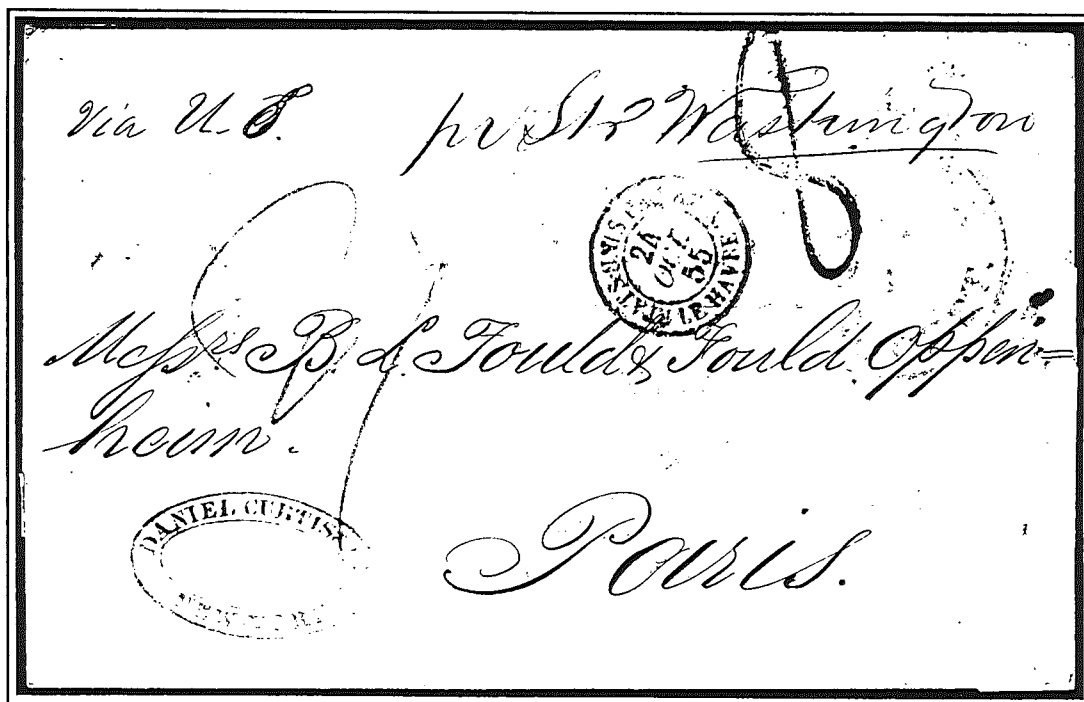 via U.S. pr Str Washington
8
ETATS UNIS LE HAVRE
24
OCT
55
Messrs B. L. Fould & Fould Oppen=
heim.
DANIEL CURTIS
NEW YORK
Paris.